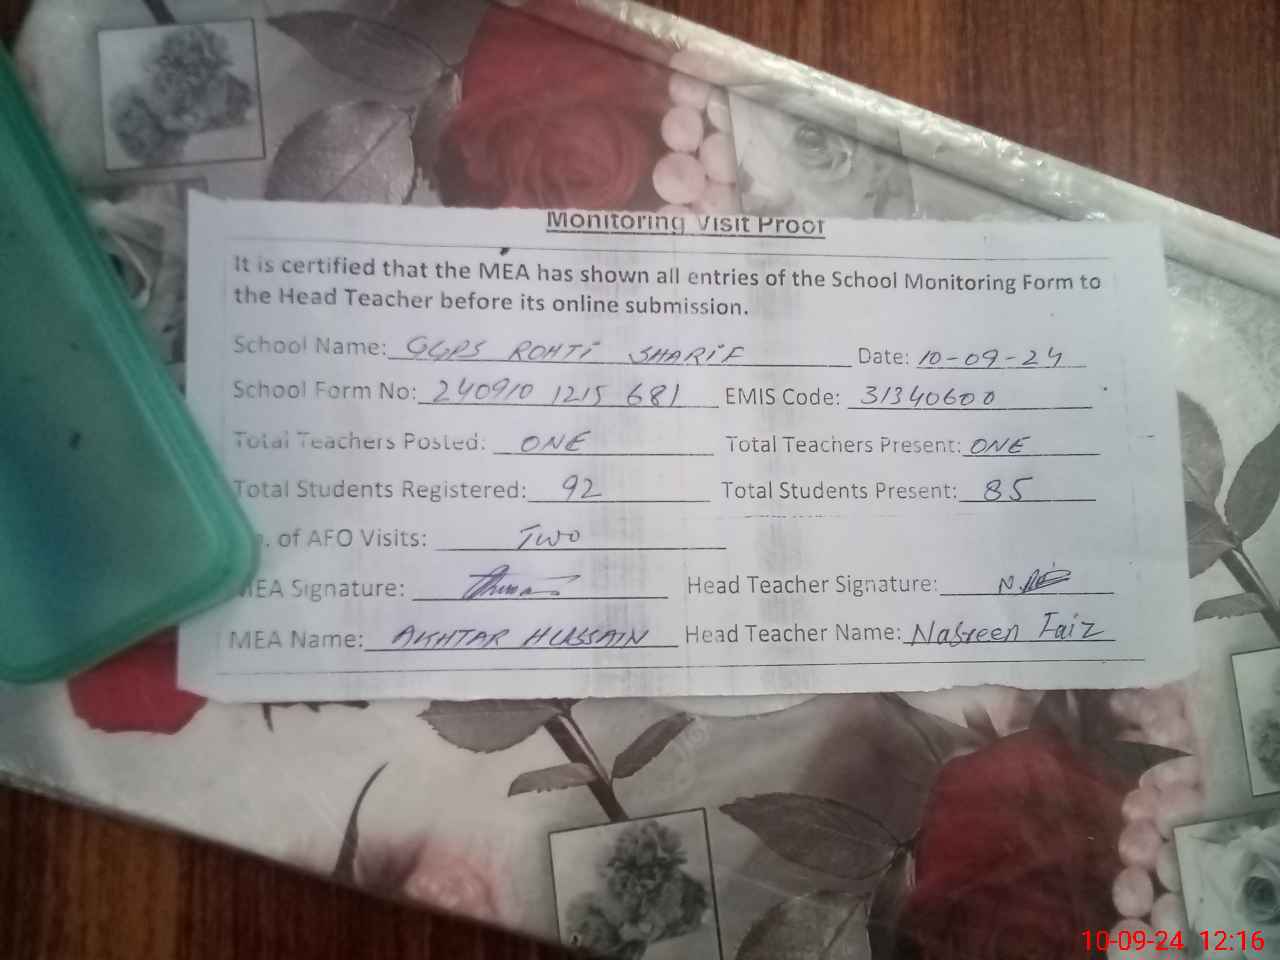 Monitoring Visit Proof
It is certified that the MEA has shown all entries of the School Monitoring Form to
the Head Teacher before its online submission.
School Name: GGPS ROHTi SHARiF Date: 10-09-24
School Form No: 240910 1215 681 EMIS Code: 31340600
Total Teachers Posted: ONE Total Teachers Present: ONE
Total Students Registered: 92 Total Students Present: 85
. of AFO Visits: Two
MEA Signature: Head Teacher Signature:
MEA Name: AKHTAR HUSSAIN Head Teacher Name: Nasreen Faiz
10-09-24 12:16